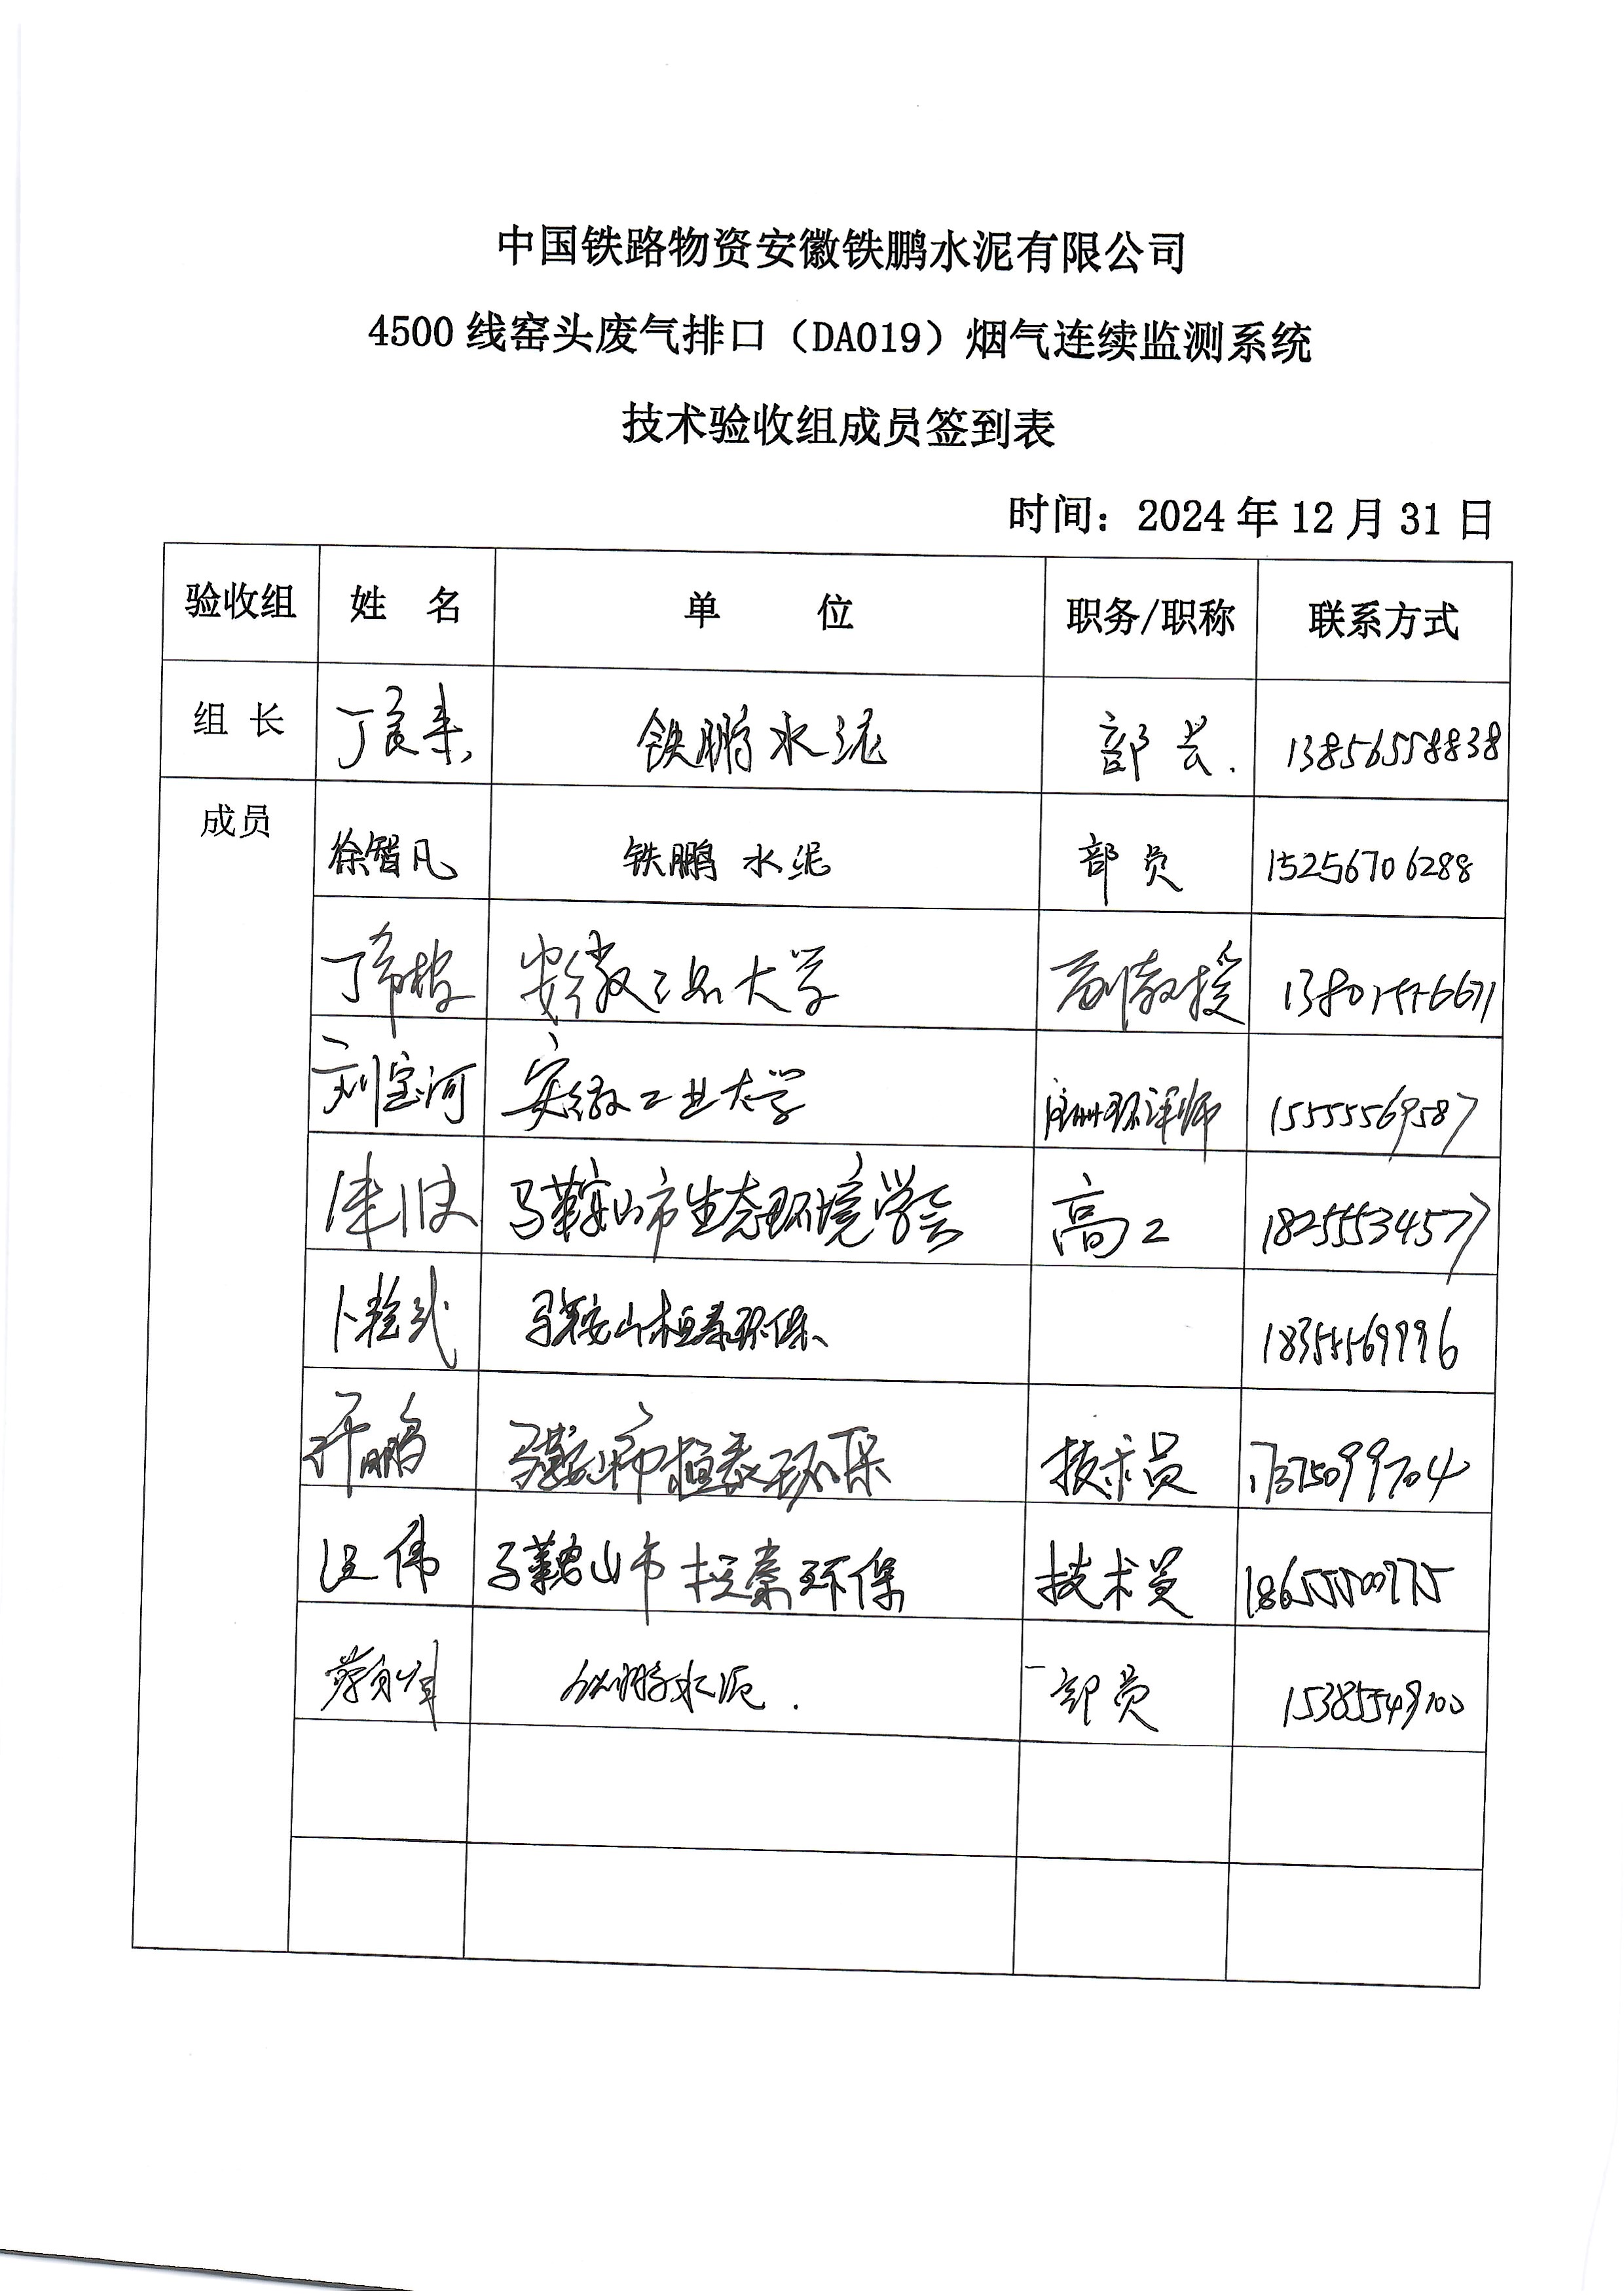 中国铁路物资安徽铁鹏水泥有限公司
4500 线窑头废气排口（DA019）烟气连续监测系统
技术验收组成员签到表
时间：2024 年 12 月 31 日
验收组 姓 名 单 位 职务/职称 联系方式
组 长 丁良来 铁鹏水泥 部长. 13856558838
成员
徐智凡 铁鹏水泥 部员 15256706288
丁希 安徽工业大学 副教授
刘宝河 安徽工业大学 注册环评师 15555569587
马鞍山市生态环境学会 高工 18255534577
卜 马鞍山桓泰环保
许鹏 马鞍山市桓泰环保 技术员 17375099704
汪伟 马鞍山市桓泰环保 技术员 18655500775
铁鹏水泥. 部员 15385549700